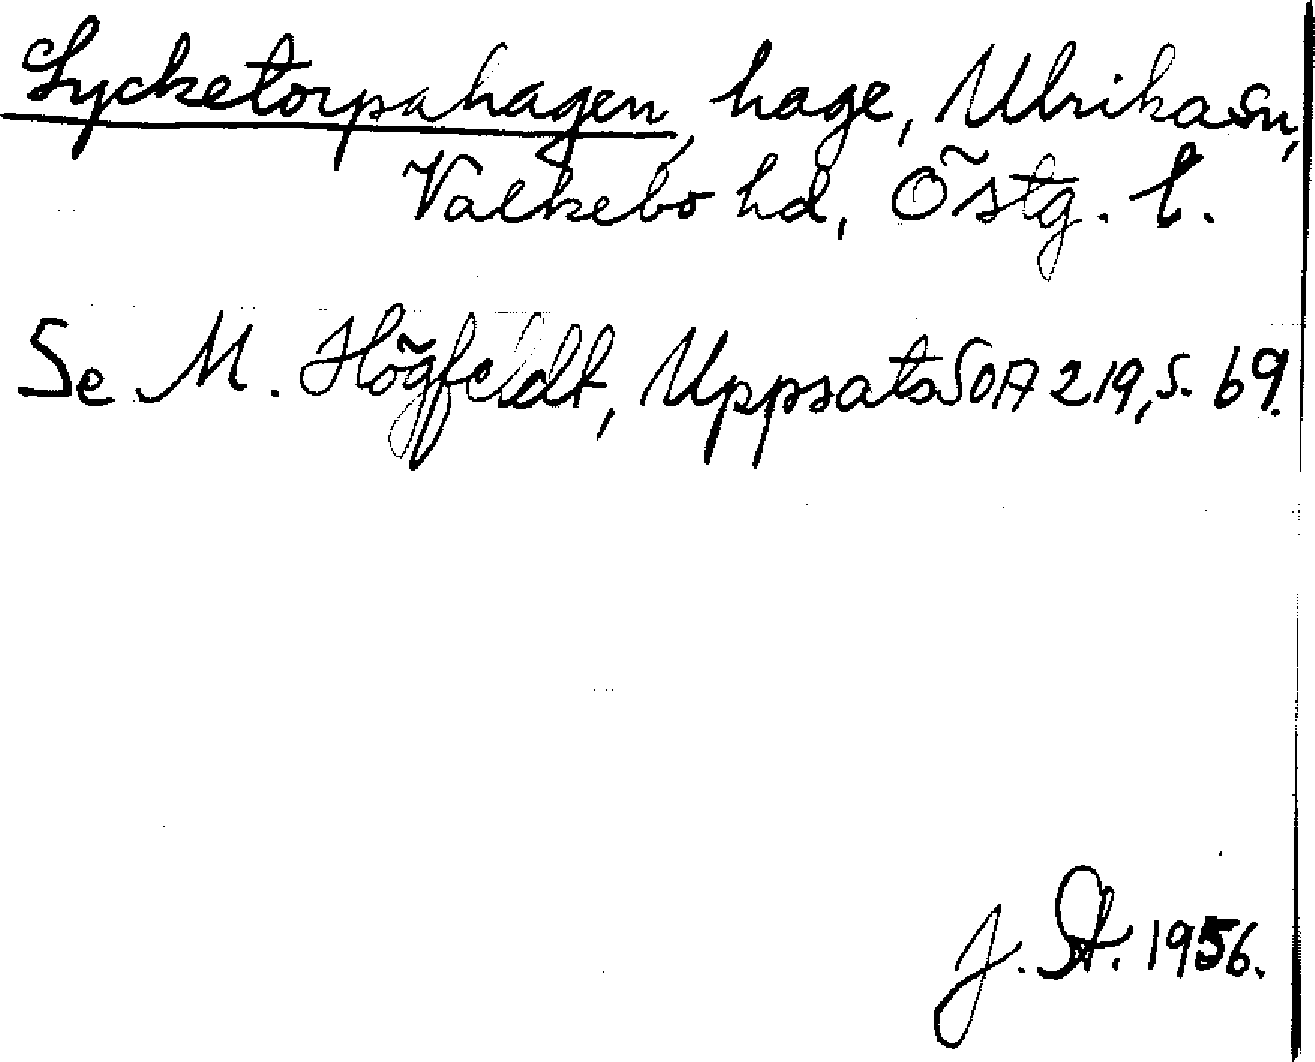 Lycketorpahagen, hage, Ulrika sn,
Valkebo hd, Östg. l.
Se M. Högfeldt, Uppsats SOA 219, s. 69.
J. St. 1956.